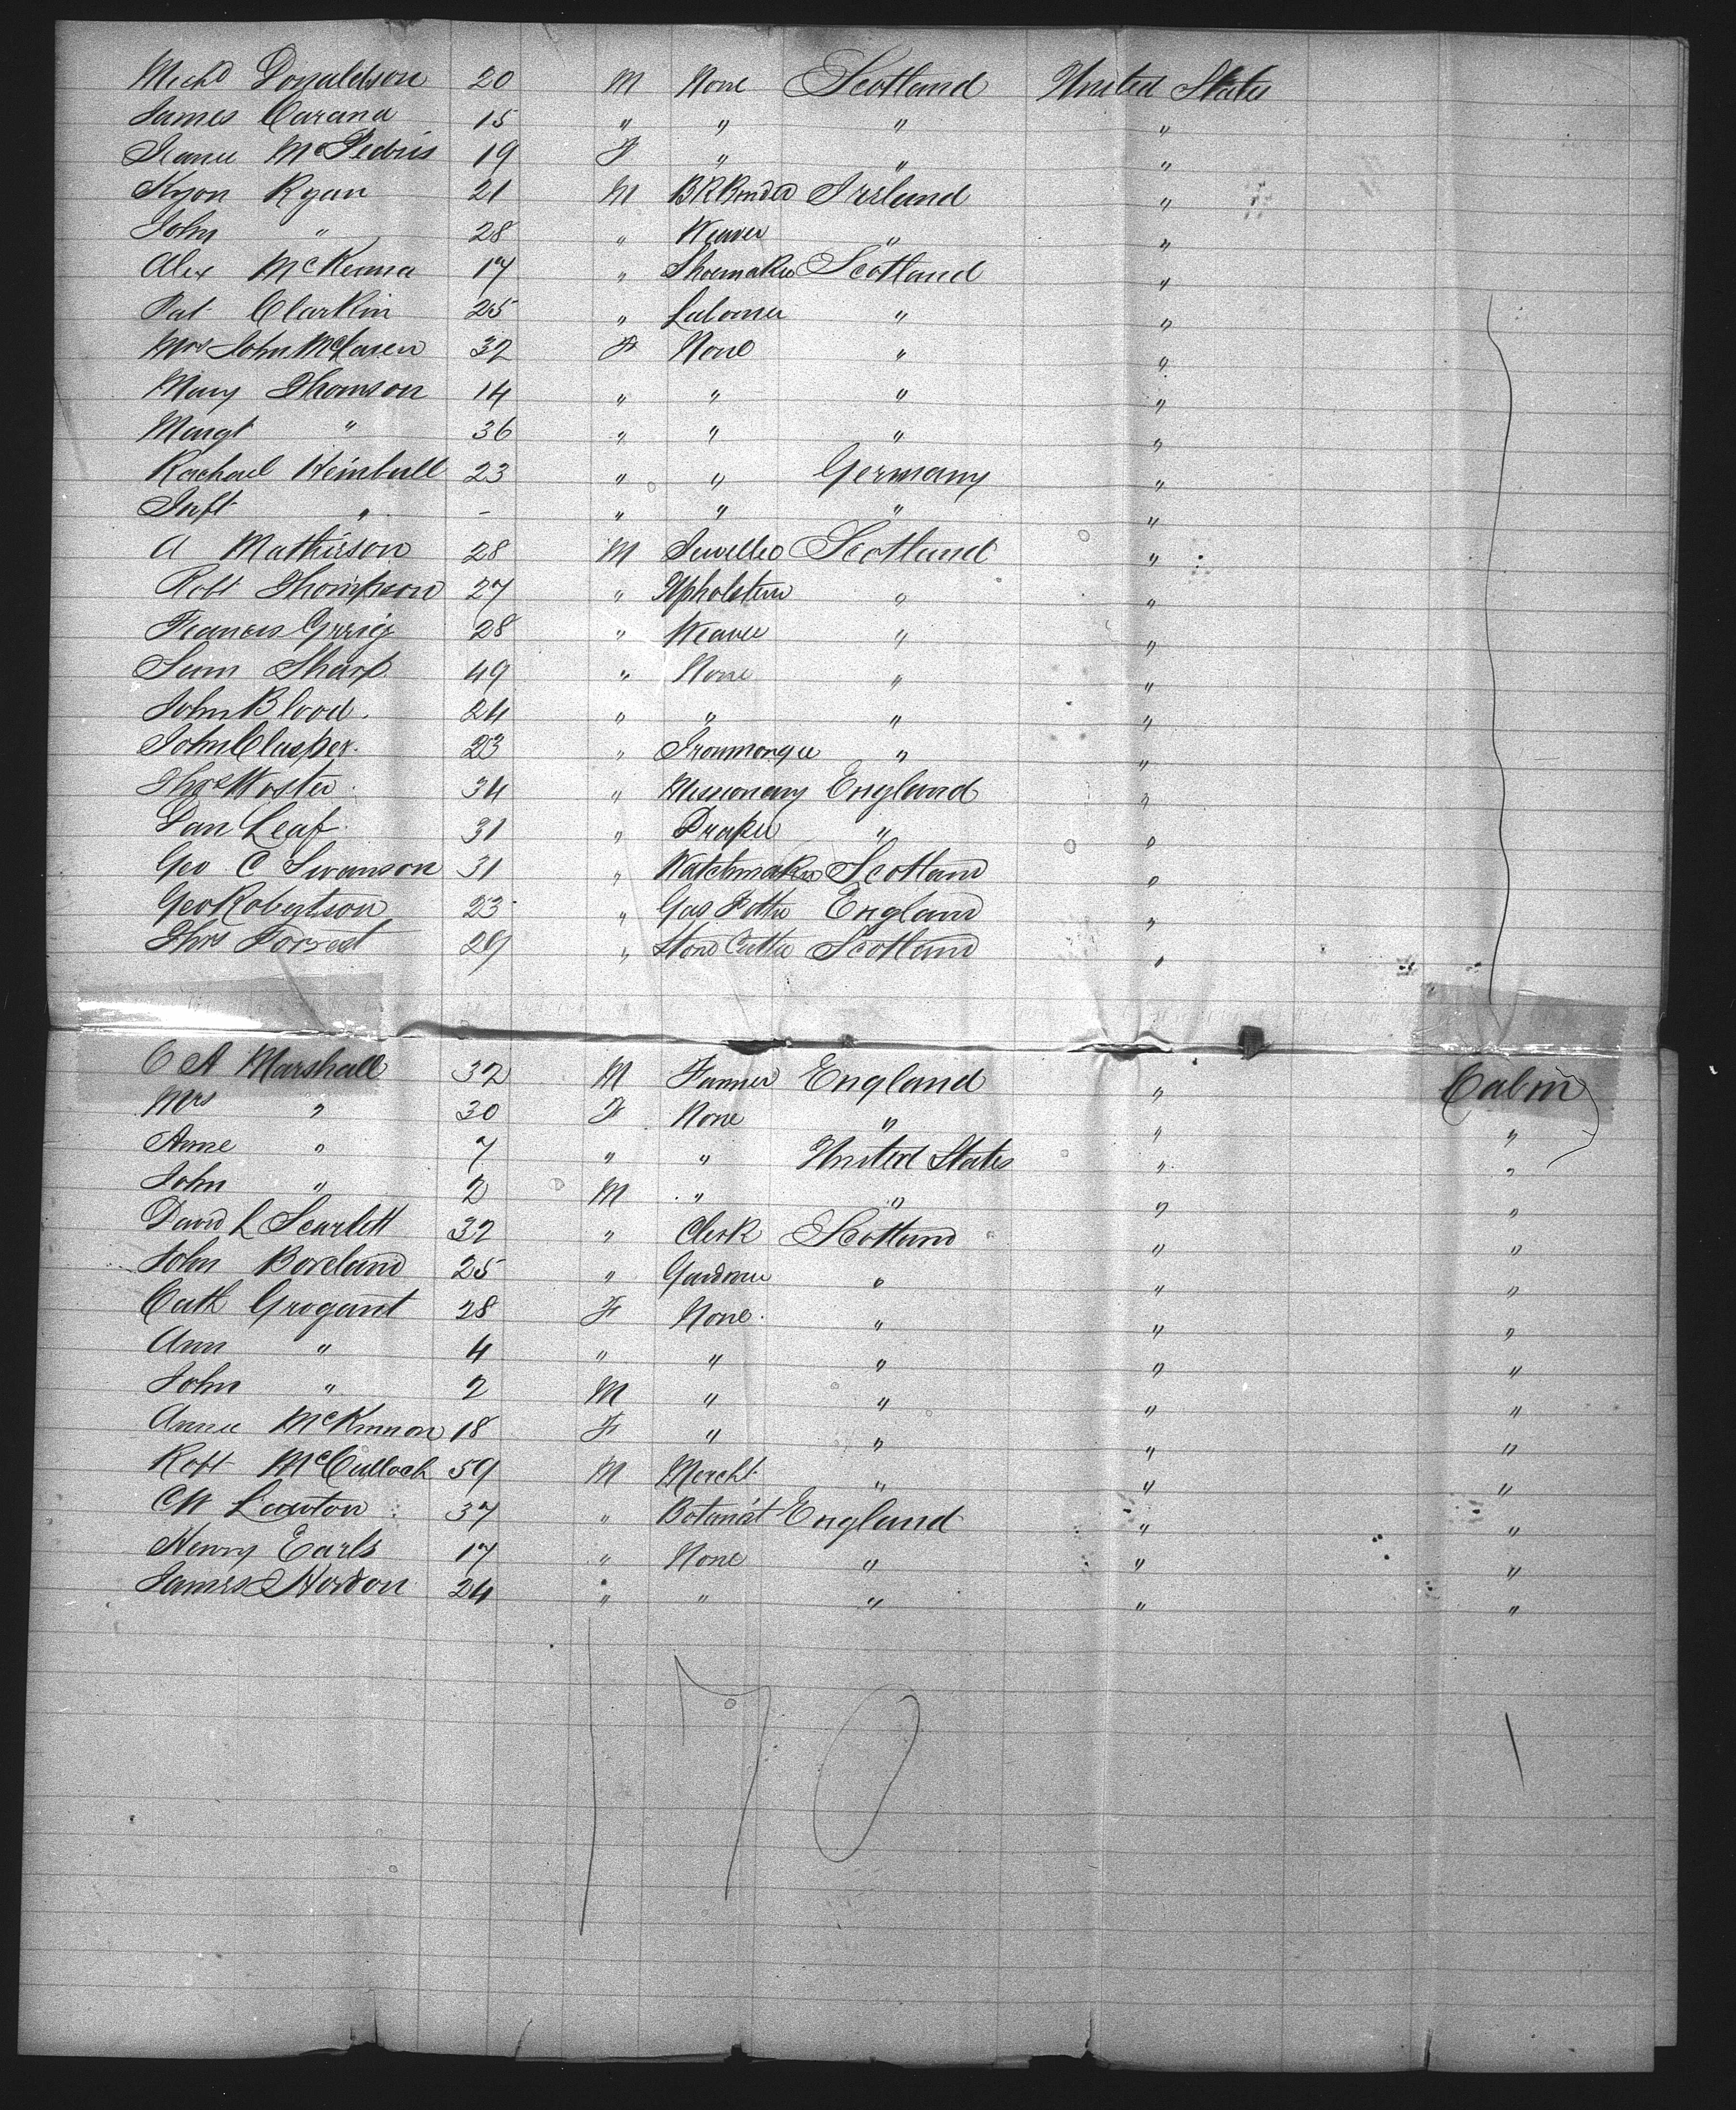 Mich<sup>d</sup> Donaldson 20 M None Scotland United States
James Carana 15 " " " "
McPedris 19 F " " "
Ryan 21 M Ireland "
John " 28 " Weaver " "
Alex McKenna 17 " Shoemaker Scotland "
Pat Clarkin 25 " Labourer " "
Mrs John McLaren 32 F None " "
Mary Thomson 14 " " " "
Margt " 36 " " " "
Rachael 23 " " Germany "
Inft " - " " " "
A Mathieson 28 M Jeweller Scotland "
Robt Thompson 27 " Upholsterer " "
Francis Greig 28 " Weaver " "
Sam Sharp 49 " None " "
John Blood. 24 " " " "
John Clasper. 23 " Ironmonger " "
Thos 34 " Missionary England "
Dan Leaf. 31 " Draper " "
Geo C Swanson 31 " Watchmaker Scotland "
Geo Robertson 23 " Gas England "
Thos Forrest 29 " Stone Cutter Scotland "
C A Marshall 32 M Farmer England " Cabin
Mrs " 30 F None " " "
Anne " 7 " " United States " "
John " 2 M " " " "
David L Scarlett 32 " Clerk Scotland " "
John Boreland 25 " Gardener " " "
Cath Grogant 28 F None. " " "
Ann " 4 " " " " "
John " 2 M " " " "
Annie McKinnon 18 F " " " "
Robt McCulloch 59 M Mercht " " "
C W Lawton 37 " Botanist England " "
Henry Earls 17 " None " " "
James Hordon 24 " " " " "
170